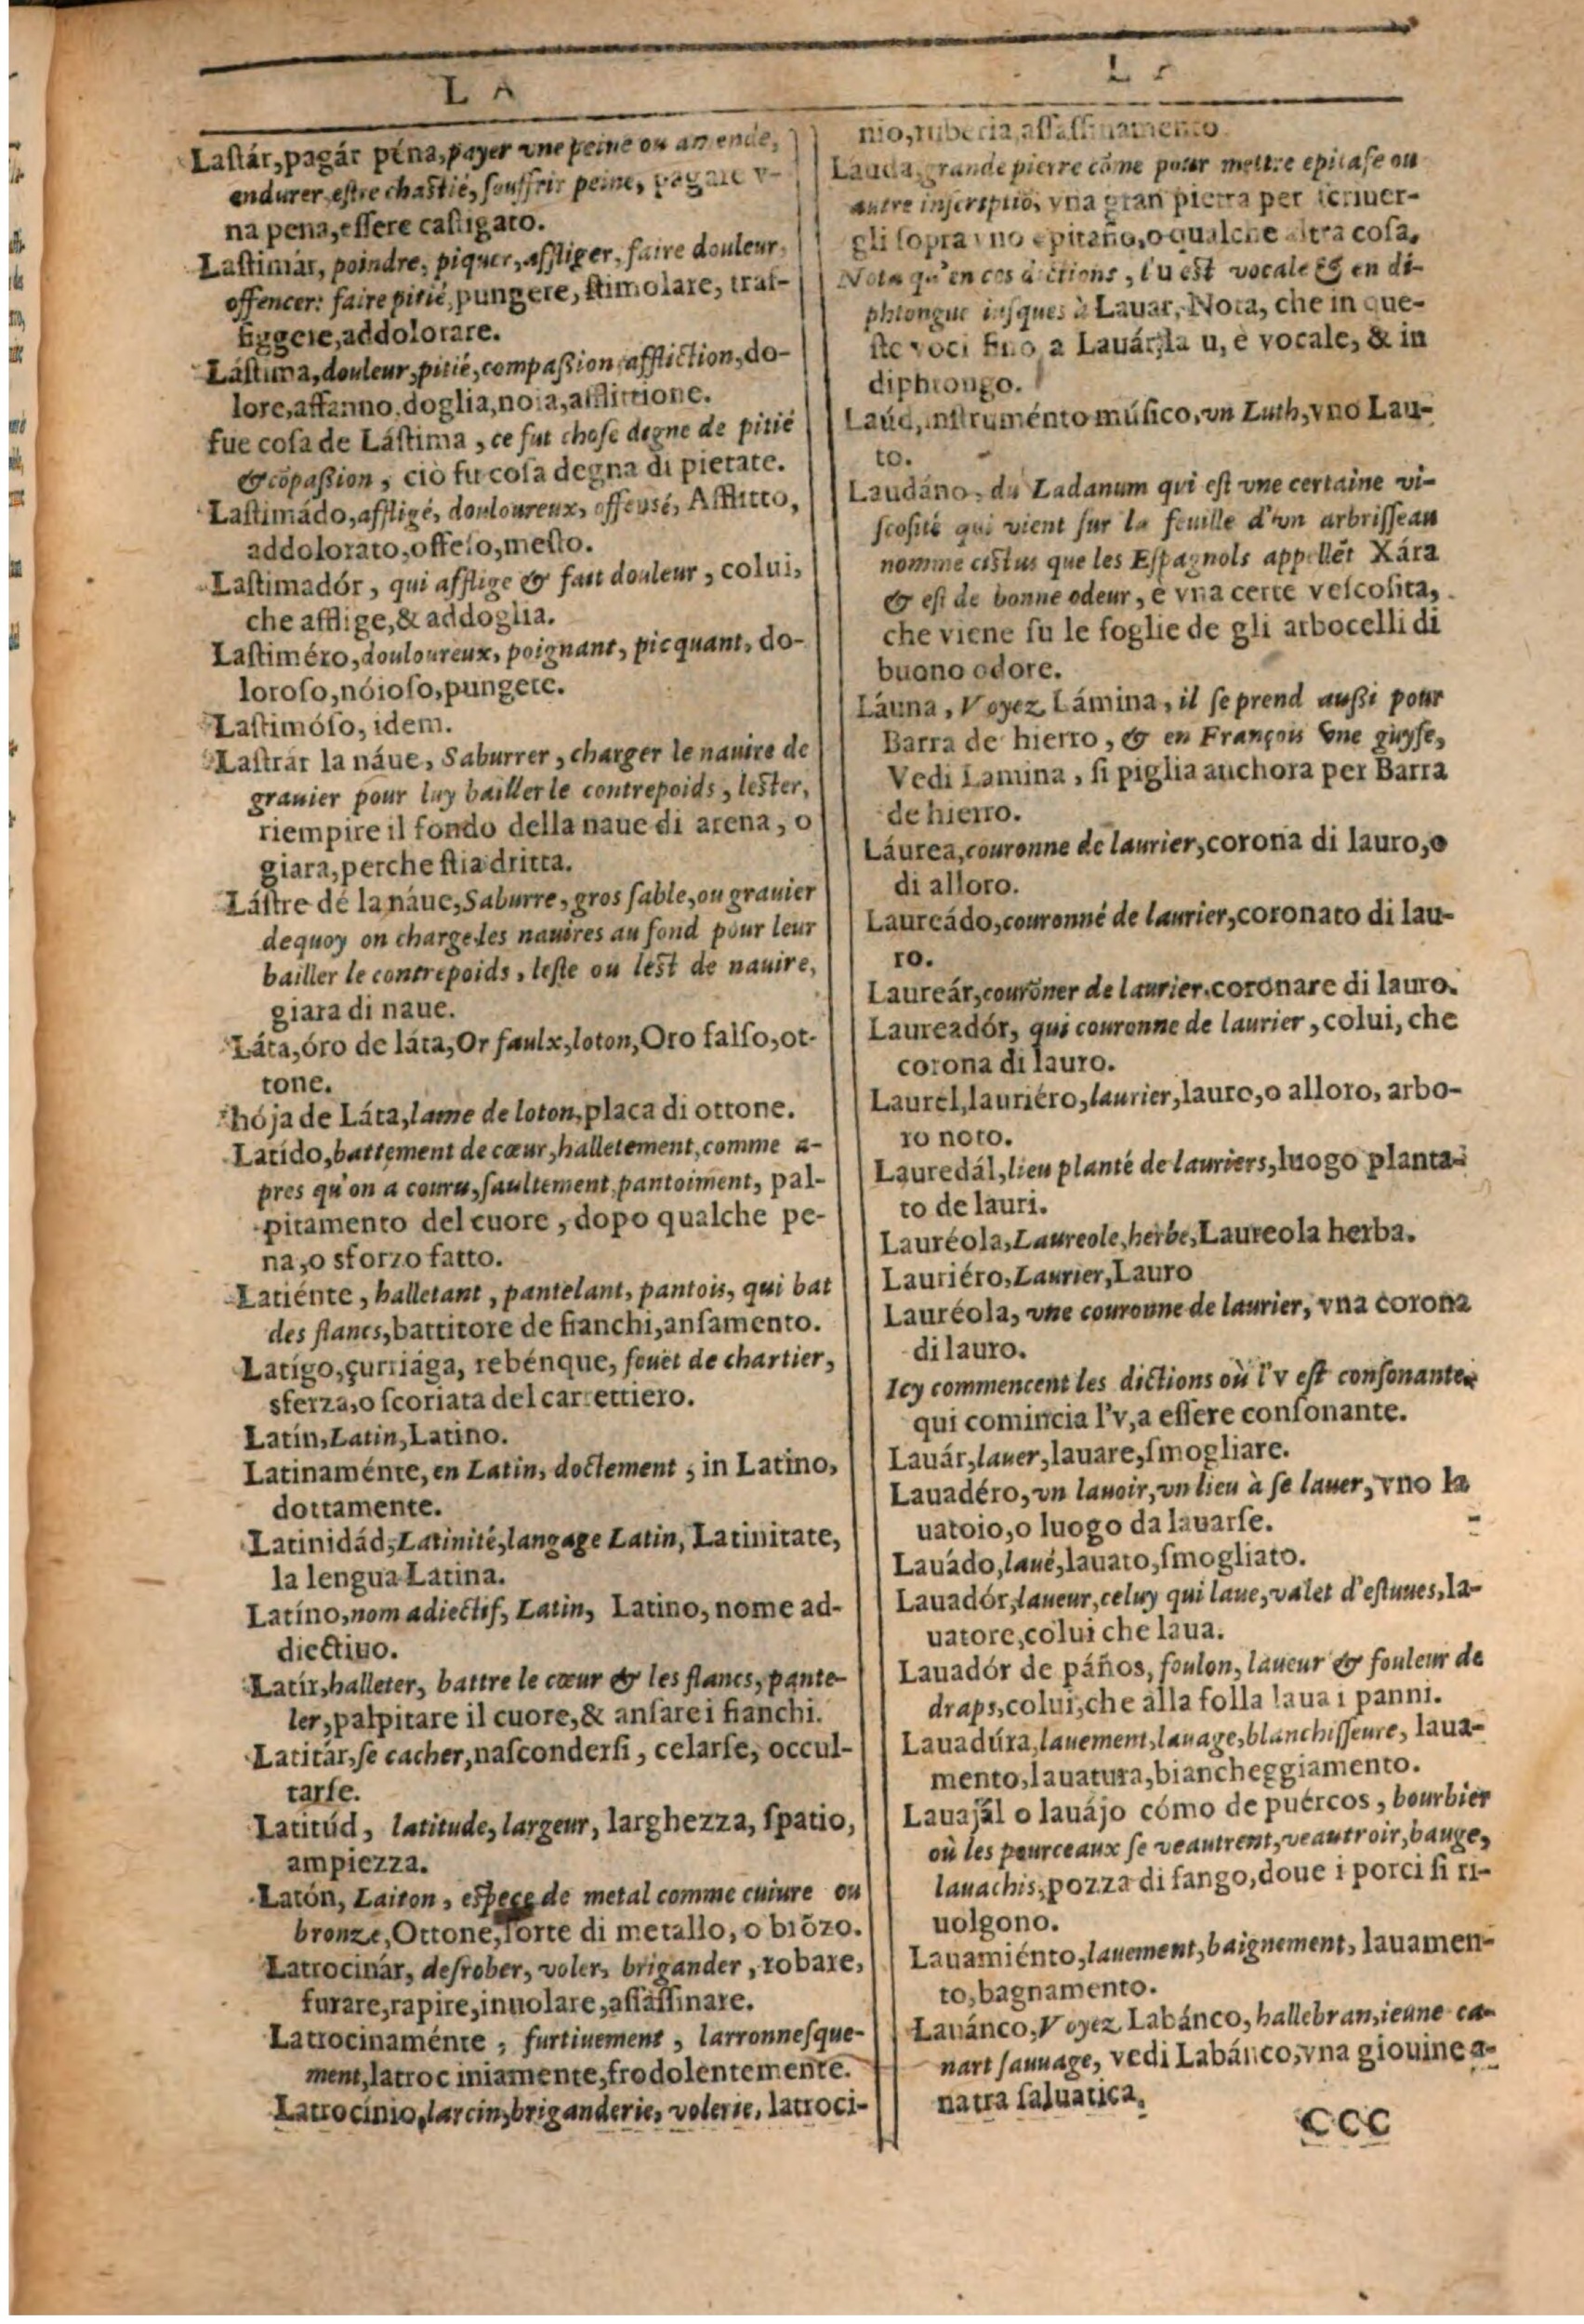 L A
Laſtár,pagár péna,payer vne peine ou amende,
endurer,eſtre chaſtié, ſouffrir peine, pagare v-
na pena,eſſere caſtigato.
Laſtimár, poindre, piquer, affliger, faire douleur,
offencer: faire pitié,pungere, ſtimolare, traf-
figgere,addolorare.
Láſtima,douleur,pitié,compaſsion,affliction,do-
lore,affanno,doglia,noia,afflittione.
fue coſa de Láſtima , ce fut choſe digne de pitié
& cõpaſsion , ciò fu coſa degna di pietate.
Laſtimádo,affligé, douloureux, offensé, Afflitto,
addolorato,offeſo,meſto.
Laſtimadór , qui afflige & fait douleur , colui,
che afflige,& addoglia.
Laſtiméro,douloureux, poignant, picquant, do-
loroſo,nóioſo,pungere.
Laſtimóſo, idem.
Laſtrár la náue, Saburrer , charger le nauire de
grauier pour luy bailler le contrepoids , leſter,
riempire il fondo della naue di arena , o
giara,perche ſtia dritta.
Láſtre dé la náue,Saburre, gros ſable,ou grauier
dequoy on charge les nauires au fond pour leur
bailler le contrepoids , leſte ou leſt de nauire,
giara di naue.
Láta,óro de láta,Or faulx,loton,Oro falſo,ot-
tone.
hója de Láta,lame de loton,placa di ottone.
Latído,battement de cœur,halletement,comme a-
pres qu'on a couru,ſaultement,pantoiment, pal-
pitamento del cuore , dopo qualche pe-
na,o sforzo fatto.
Latiénte , halletant , pantelant, pantois, qui bat
des flancs,battitore de fianchi,anſamento.
Latígo,çurriága, rebénque, fouët de chartier,
sferza,o ſcoriata del carrettiero.
Latín,Latin,Latino.
Latinaménte, en Latin, doctement , in Latino,
dottamente.
Latinidád,Latinité,langage Latin, Latinitate,
la lengua Latina.
Latíno,nom adiectif, Latin, Latino, nome ad-
diectiuo.
Latír,halleter, battre le cœur & les flancs, pante-
ler,palpitare il cuore,& anſare i fianchi.
Latitár,se cacher,naſconderſi , celarſe, occul-
tarſe.
Latitúd, latitude, largeur, larghezza, ſpatio,
ampiezza.
Latón, Laiton , eſpece de metal comme cuiure ou
bronze,Ottone,ſorte di metallo, o brõzo.
Latrocinár, deſrober, voler, brigander , robare,
furare,rapire,inuolare,aſſaſſinare.
Latrocinaménte , furtiuement , larronneſque-
ment,latroc iniamente,frodolentemente.
Latrocínio,larcin,briganderie, volerie, latroci-
L
nio,ruberia,aſſaſſinamento.
Lauda,grande pierre cõme pour mettre epitaſe ou
autre inſcriptiõ, vna gran pietra per ſcriuer-
gli ſopra vno epitafio,o qualche altra coſa.
Nota qu'en ces dictions , l'u est vocale & en di-
phtongue iuſques à Lauar, Nota, che in que-
ſte voci fino a Lauár,la u, è vocale, & in
diphtongo.
Laúd,inſtruménto múſico, vn Luth, vno Lau-
to.
Laudáno, du Ladanum qui eſt vne certaine vi-
ſcoſité qui vient ſur la feuille d'vn arbriſſeau
nommé ciſtus que les Eſpagnols appellẽt Xára
& eſt de bonne odeur , e vna certe veſcoſita,
che viene ſu le foglie de gli arbocelli di
buono odore.
Láuna , Voyez Lámina, il ſe prend auſsi pour
Barra de hierro , & en François vne guyſe,
Vedi Lamina , ſi piglia anchora per Barra
de hierro.
Láurea,couronne de laurier,corona di lauro,o
di alloro.
Laureádo,couronné de laurier,coronato di lau-
ro.
Laureár,courõner de laurier,coronare di lauro.
Laureadór, qui couronne de laurier , colui, che
corona di lauro.
Laurel,lauriéro,laurier,lauro,o alloro, arbo-
ro noto.
Lauredál,lieu planté de lauriers,luogo planta-
to de lauri.
Lauréola,Laureole,herbe,Laureola herba.
Lauriéro,Laurier,Lauro
Lauréola, vne couronne de laurier, vna corona
di lauro.
Icy commencent les dictions où l'v eſt conſonante,
qui comincia l'v,a eſſere conſonante.
Lauár,lauer,lauare,ſmogliare.
Lauadéro,vn lauoir,vn lieu à ſe lauer, vno la
uatoio,o luogo da lauarſe.
Lauádo,laué,lauato,ſmogliato.
Lauadór,laueur,celuy qui laue,valet d'eſtuues,la-
uatore,colui che laua.
Lauadór de páños, foulon, laueur & fouleur de
draps,colui,che alla folla laua i panni.
Lauadúra,lauement,lauage,blanchiſſeure, laua-
mento,lauatura,biancheggiamento.
Lauajál o lauájo cómo de puércos , bourbier
où les pourceaux ſe veautrent,veautroir,bauge,
lauachis,pozza di fango,doue i porci ſi ri-
uolgono.
Lauamiénto,lauement,baignement, lauamen-
to,bagnamento.
Lauánco,Voyez Labánco, hallebran,ieune ca-
nart ſauuage, vedi Labánco,vna giouine a-
natra ſaluatica.
CCC